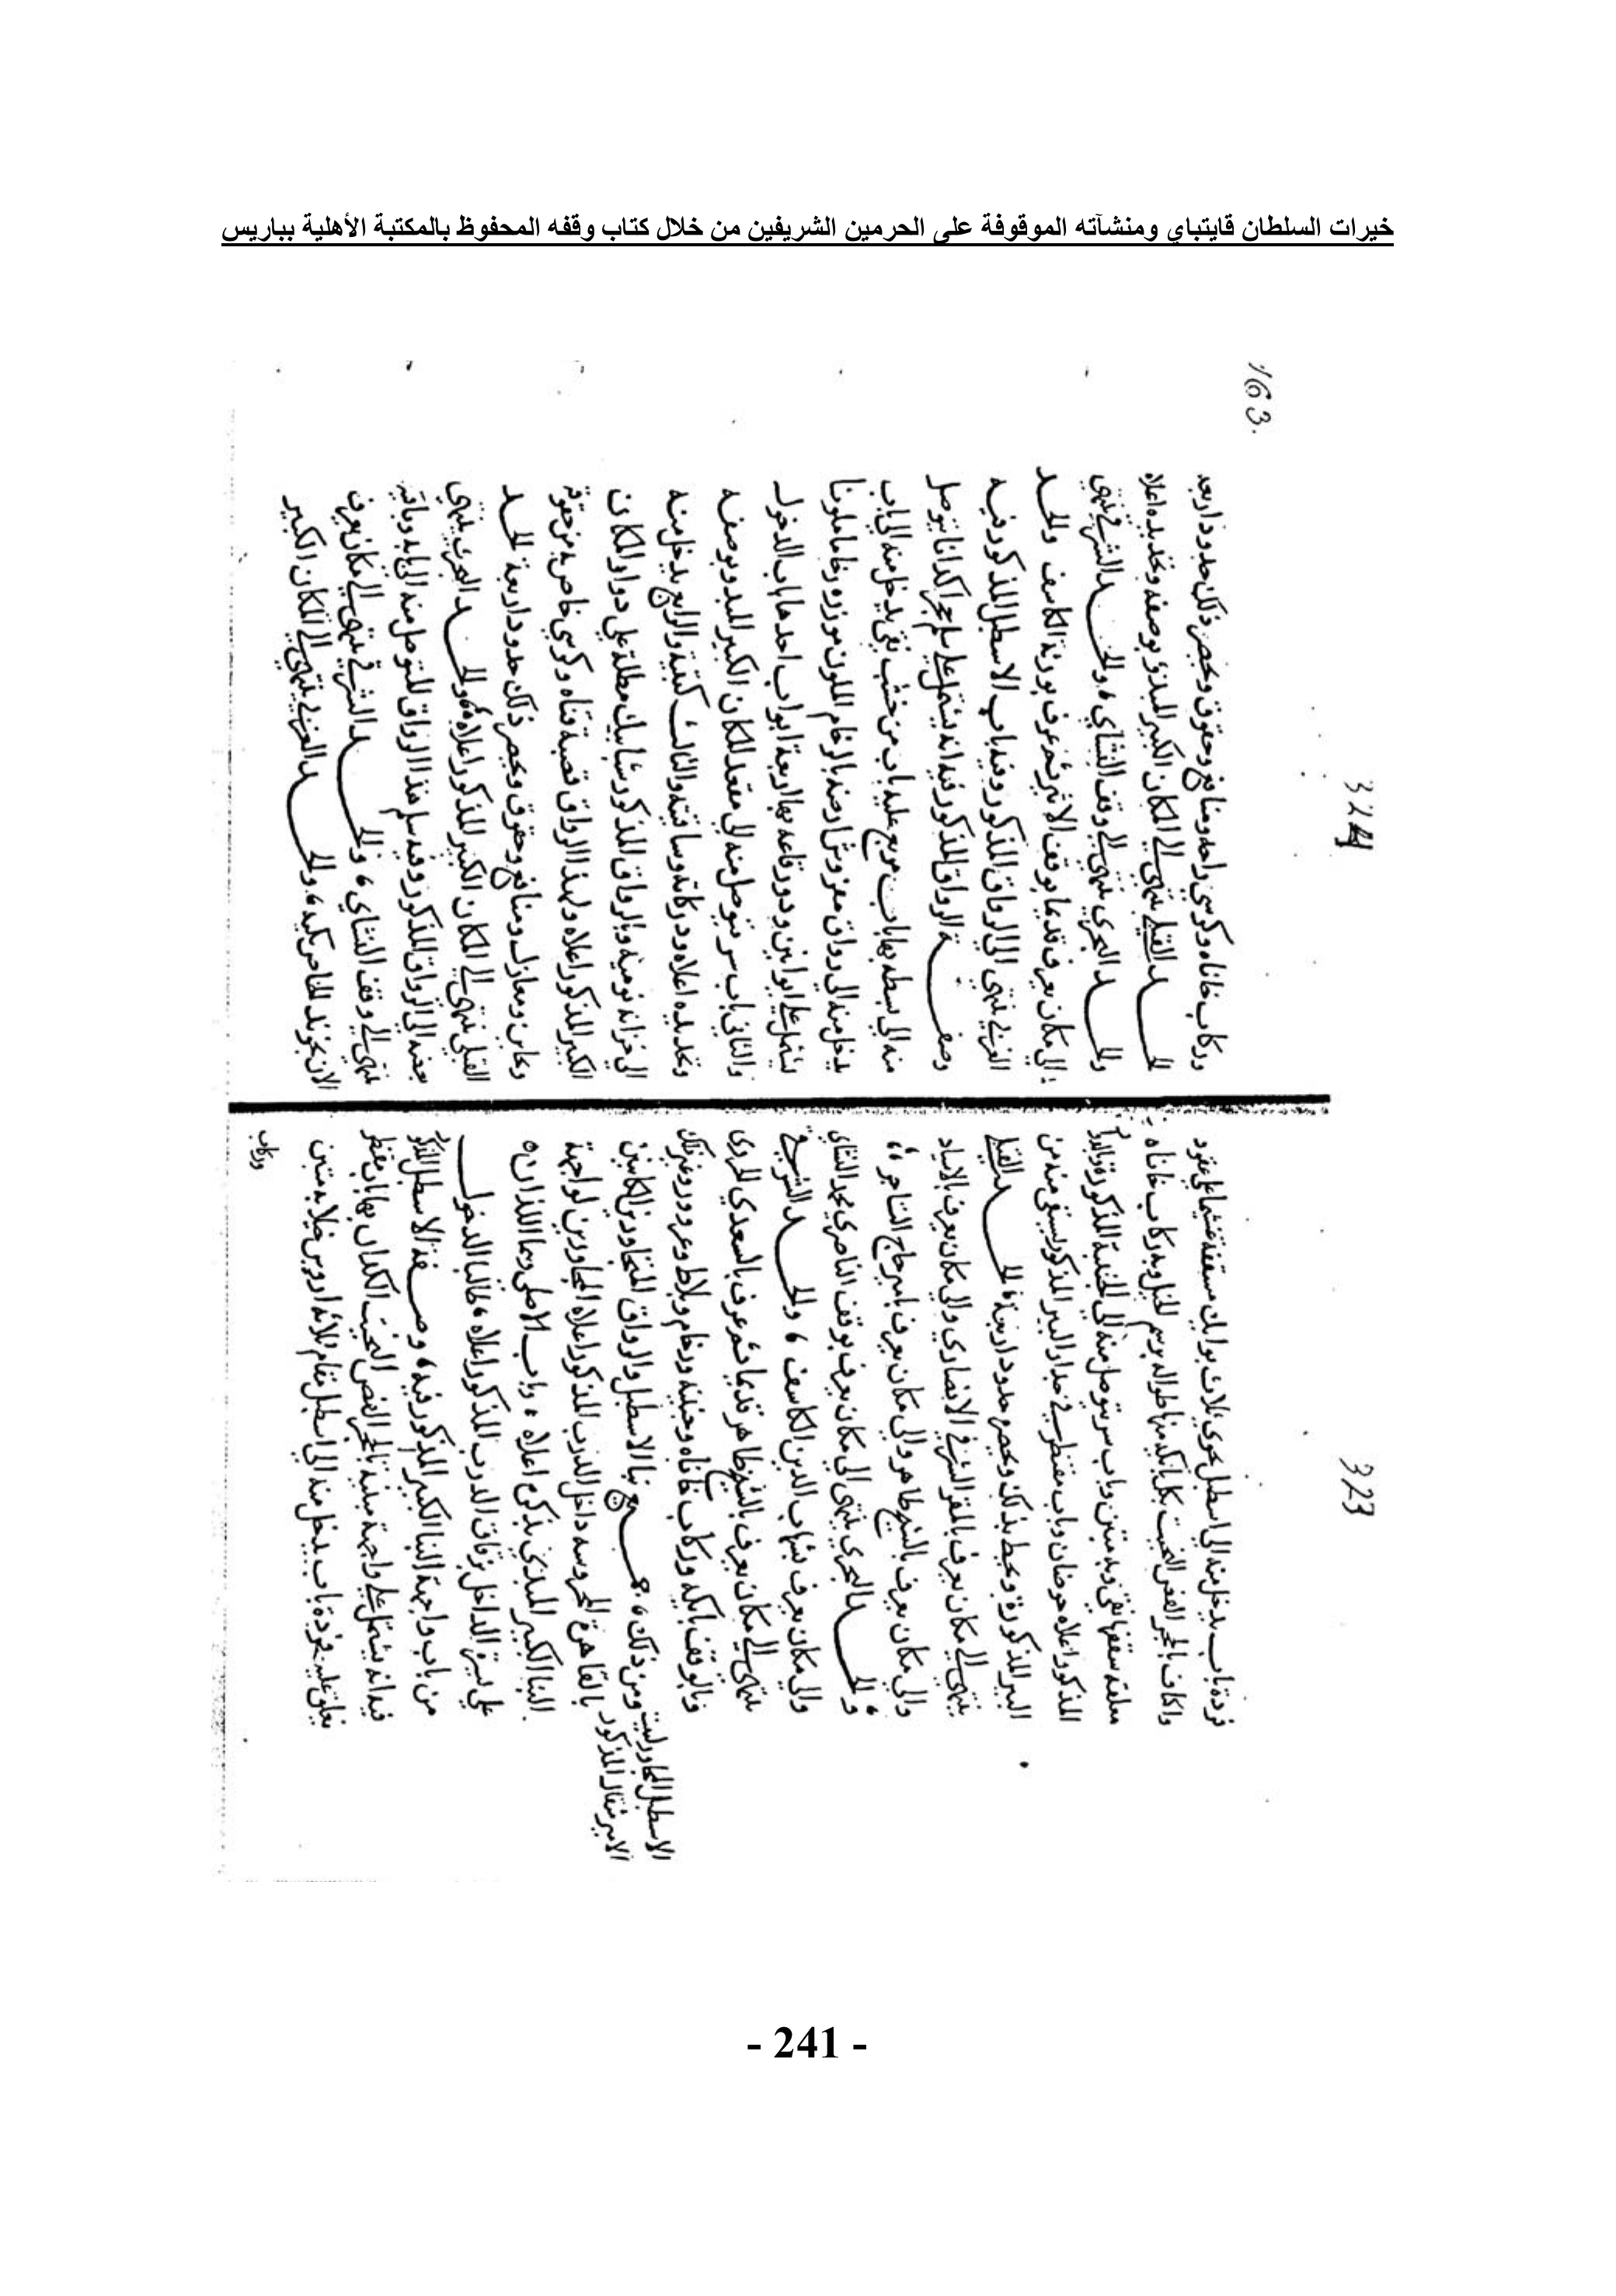 خيرات السلطان قايتباي ومنشآته الموقوفة على الحرمين الشريفين من خلال كتاب وقفه المحفوظ بالمكتبة الأهلية بباريس
323
فردة باب يدخل منه الى اسطبل يحوي ثلاث بوايك مسقفة غشيما على عقود
واكاف بالحجر الفص النحيت بكل بايكه منها طواله برسم الخيل وبه ركاب خاناه
معلقه سقفها نقى وبه متبن وباب سر يتوصل منه الى الجنينة المذكورة
المذكور اعلاه حوضان وباب مقنطر في جدار البير المذكور يستقى منه من
البير المذكورة ويحيط بذلك ويحصره حدود اربعة الحد القبلي
ينتهي الى مكان يعرف بالمقر الشرفي الانصاري والى مكان يعرف بالاسياد
والى مكان يعرف بالشيخ طاهر والى مكان يعرف بامير حاج التاجر
والحد البحري ينتهى الى مكان يعرف بوقف الناصري محمد النشاي
والى مكان يعرف بشهاب الدين الكاسف والحد الشرقي
ينتهى الى مكان يعرف بالشيخ طاهر قديما ثم عرف بالسعدي
بايكه وركاب خاناه وجنينه ورخام وبلاط وغير ذلك
ومن ذلك جميع بنا الاسطبل والرواق المتجاورين الكاينين
الاسطبل المجاور لبيت
الامير مثقال المذكور
بالقاهرة المحروسه داخل الدرب المذكور اعلاه المجاورين لواجهة
البنا الكبير المبدئ بذكره اعلاه وباب الاصلي وهما اللذان
على يسرة الداخل بزقاق الدرب المذكور اعلاه طالبا الدخول
من باب واجهة البنا الكبير المذكور فيه وصفة الاسطبل المذكور
فيه انه يشتمل على واجهة مبنية بالحجر الفص النحيت الكدان بها باب مقنطر
يغلق عليه فردة باب يدخل منه الى اسطبل مقام ثلاثة اروس خيلا به متبن
وركاب
163
324
وركاب خاناه وكرسي راحه ومنافع وحقوق ويحصر ذلك حدود اربعه
الحد القبلي ينتهى الى المكان الكبير المبدؤ بوصفه وتحديده اعلاه
والحد البحري ينتهي الى وقف النشاي والحد الشرقي ينتهي
الى مكان يعرف قديما بوقف الامير ثم عرف بورثة الكاسف والحد
الغربي ينتهي الى الرواق المذكور وفيه باب الاسطبل المذكور فيه
وصفة الرواق المذكور فيه انه يشتمل على سلم حجر كدانا يتوصل
منه الى بسطه بها باب مربع عليه باب من خشب نقي يدخل منه الى باب
يدخل منه الى رواق مفروش ارضه بالرخام الملون موزره رخاما ملونا
يشتمل على ايوانين ودور قاعه بها اربعة ابواب احدها باب الدخول
والثاني باب سر يتوصل منه الى مقعد المكان الكبير المبدو بوصفه
وتحديده اعلاه ودركاته وساقيته والثالث كتبية والرابع يدخل منه
الى خزانه نوميه وبالرواق المذكور شبابيك مطلة على دوار المكان
الكبير المذكور اعلاه ولهذا الرواق قصبة قناه وكرسي خاص به من حقوقه
ومخابز ومعازل ومنافع وحقوق ويحصر ذلك حدود اربعة الحد
القبلي ينتهى الى المكان الكبير المذكور اعلاه والحد البحري ينتهي
بعضه الى الرواق المذكور وفيه سلم هذا الرواق المتوصل منه الى بابه وباقيه
ينتهي الى وقف النشاي والحد الشرقي ينتهى الى مكان يعرف
الان والحد الغربي ينتهي الى المكان الكبير
- 241 -